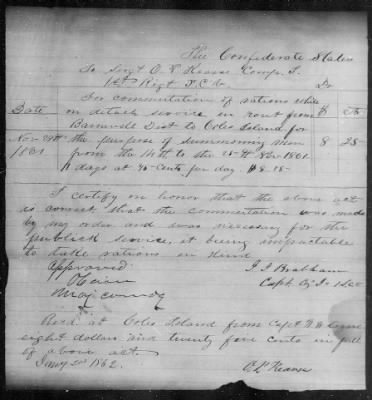 The Confederate States
To Sergt O. P. Kearse Comp. I.
1st Regt S.C.V. Dr
For commutation of rations while
Date on detach service in rout from $
Barnwell Dist to Coles Island for
Nov 29th the purpose of summoning men 8 25
1861 from the 14th to the Nov 1861
days at 75 cents per day $8.25
I certify on honor that the above act
is correct that the commutation was made
by my order and was necessary for the
publick service, it being impracticable
to take rations in kind
Approved J. J. Brabham
Capt
Maj comdg
Recd at Coles Island from Capt
eight dollars and twenty five cents in full
of above act.
Jany 2nd 1862. O. P. Kearse